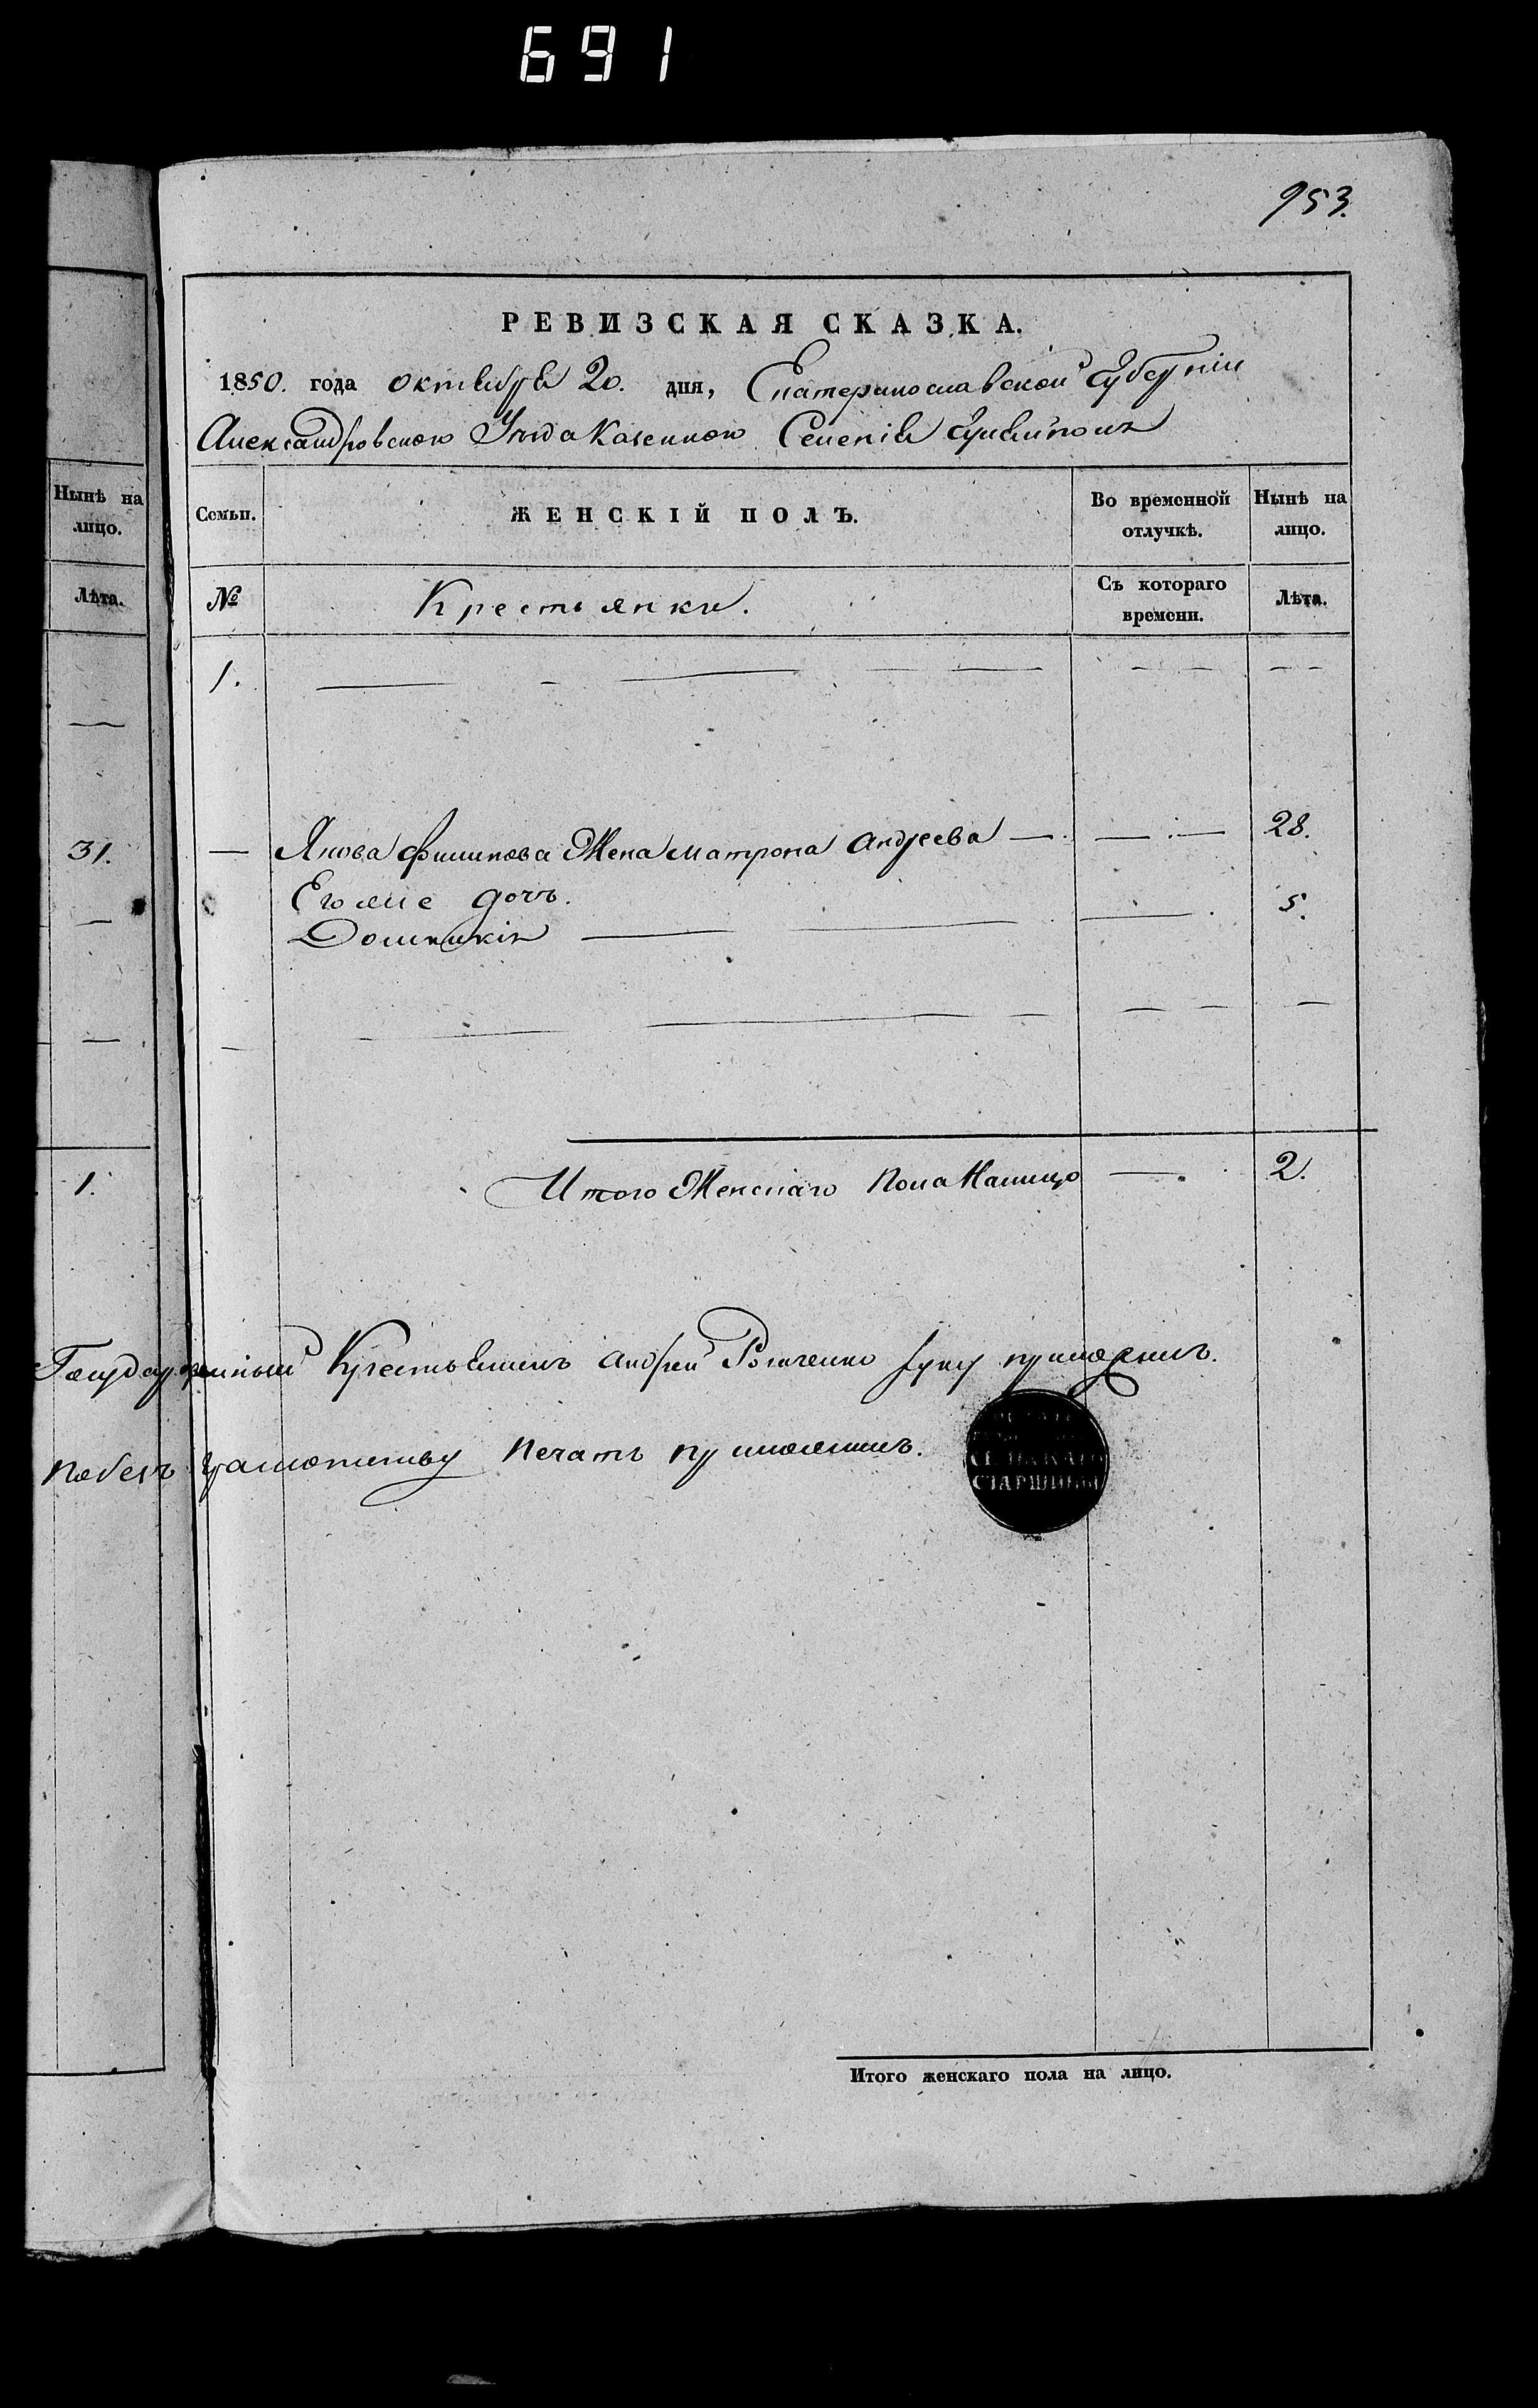 691
953.
РЕВИЗСКАЯ СКАЗКА.
1850. года октября 20. дня, Екатеринославской Губерніи
Александровского Уѣзда Казенного Селенія Гуляйполя
Нынѣ на лицо.
Лѣта.
Семьи.
ЖЕНСКІЙ ПОЛЪ.
Во временной отлучкѣ.
Нынѣ на лицо.
№
Крестьянки.
Съ котораго времени.
Лѣта.
1.
31.
Якова Филипова Жена Матрона Андреева 28.
Его же дочь.
Домникія 5.
1.
Итого Женскаго Пола Налицо 2.
Государственный Крестьянинъ Андрей руку приложилъ.
печать приложилъ.
СЕЛЬСКАГО
СТАРШИНЫ
Итого женскаго пола на лицо.